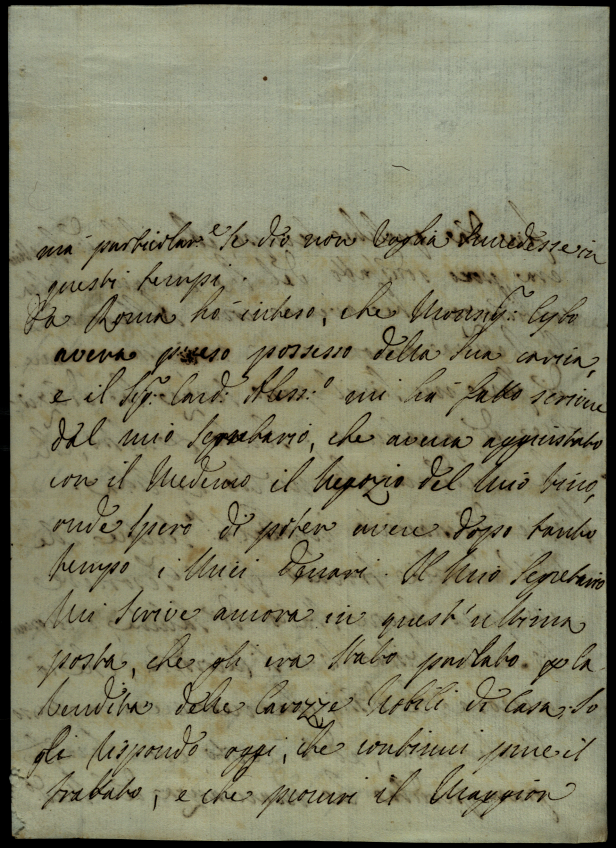 ma particolar.e se dio non voglia succedesse in
questi tempi.
Da Roma hò inteso, che Monsig.r Cybo
aveva preso possesso della sua carica,
e il Sig.r Card. Aless.o mi hà fatto scrivere
dal mio Segretario, che aveva aggiustato
con il Medemo il negozio del mio vino,
onde spero di poter avere dopo tanto
tempo i miei denari. Il mio Segretario
mi scrive ancora in quest'ultima
posta, che gli era stato parlato p la
vendita delle Carozze nobili di Casa. Io
gli rispondo oggi, che continui pure il
trattato, e che procuri il Maggior